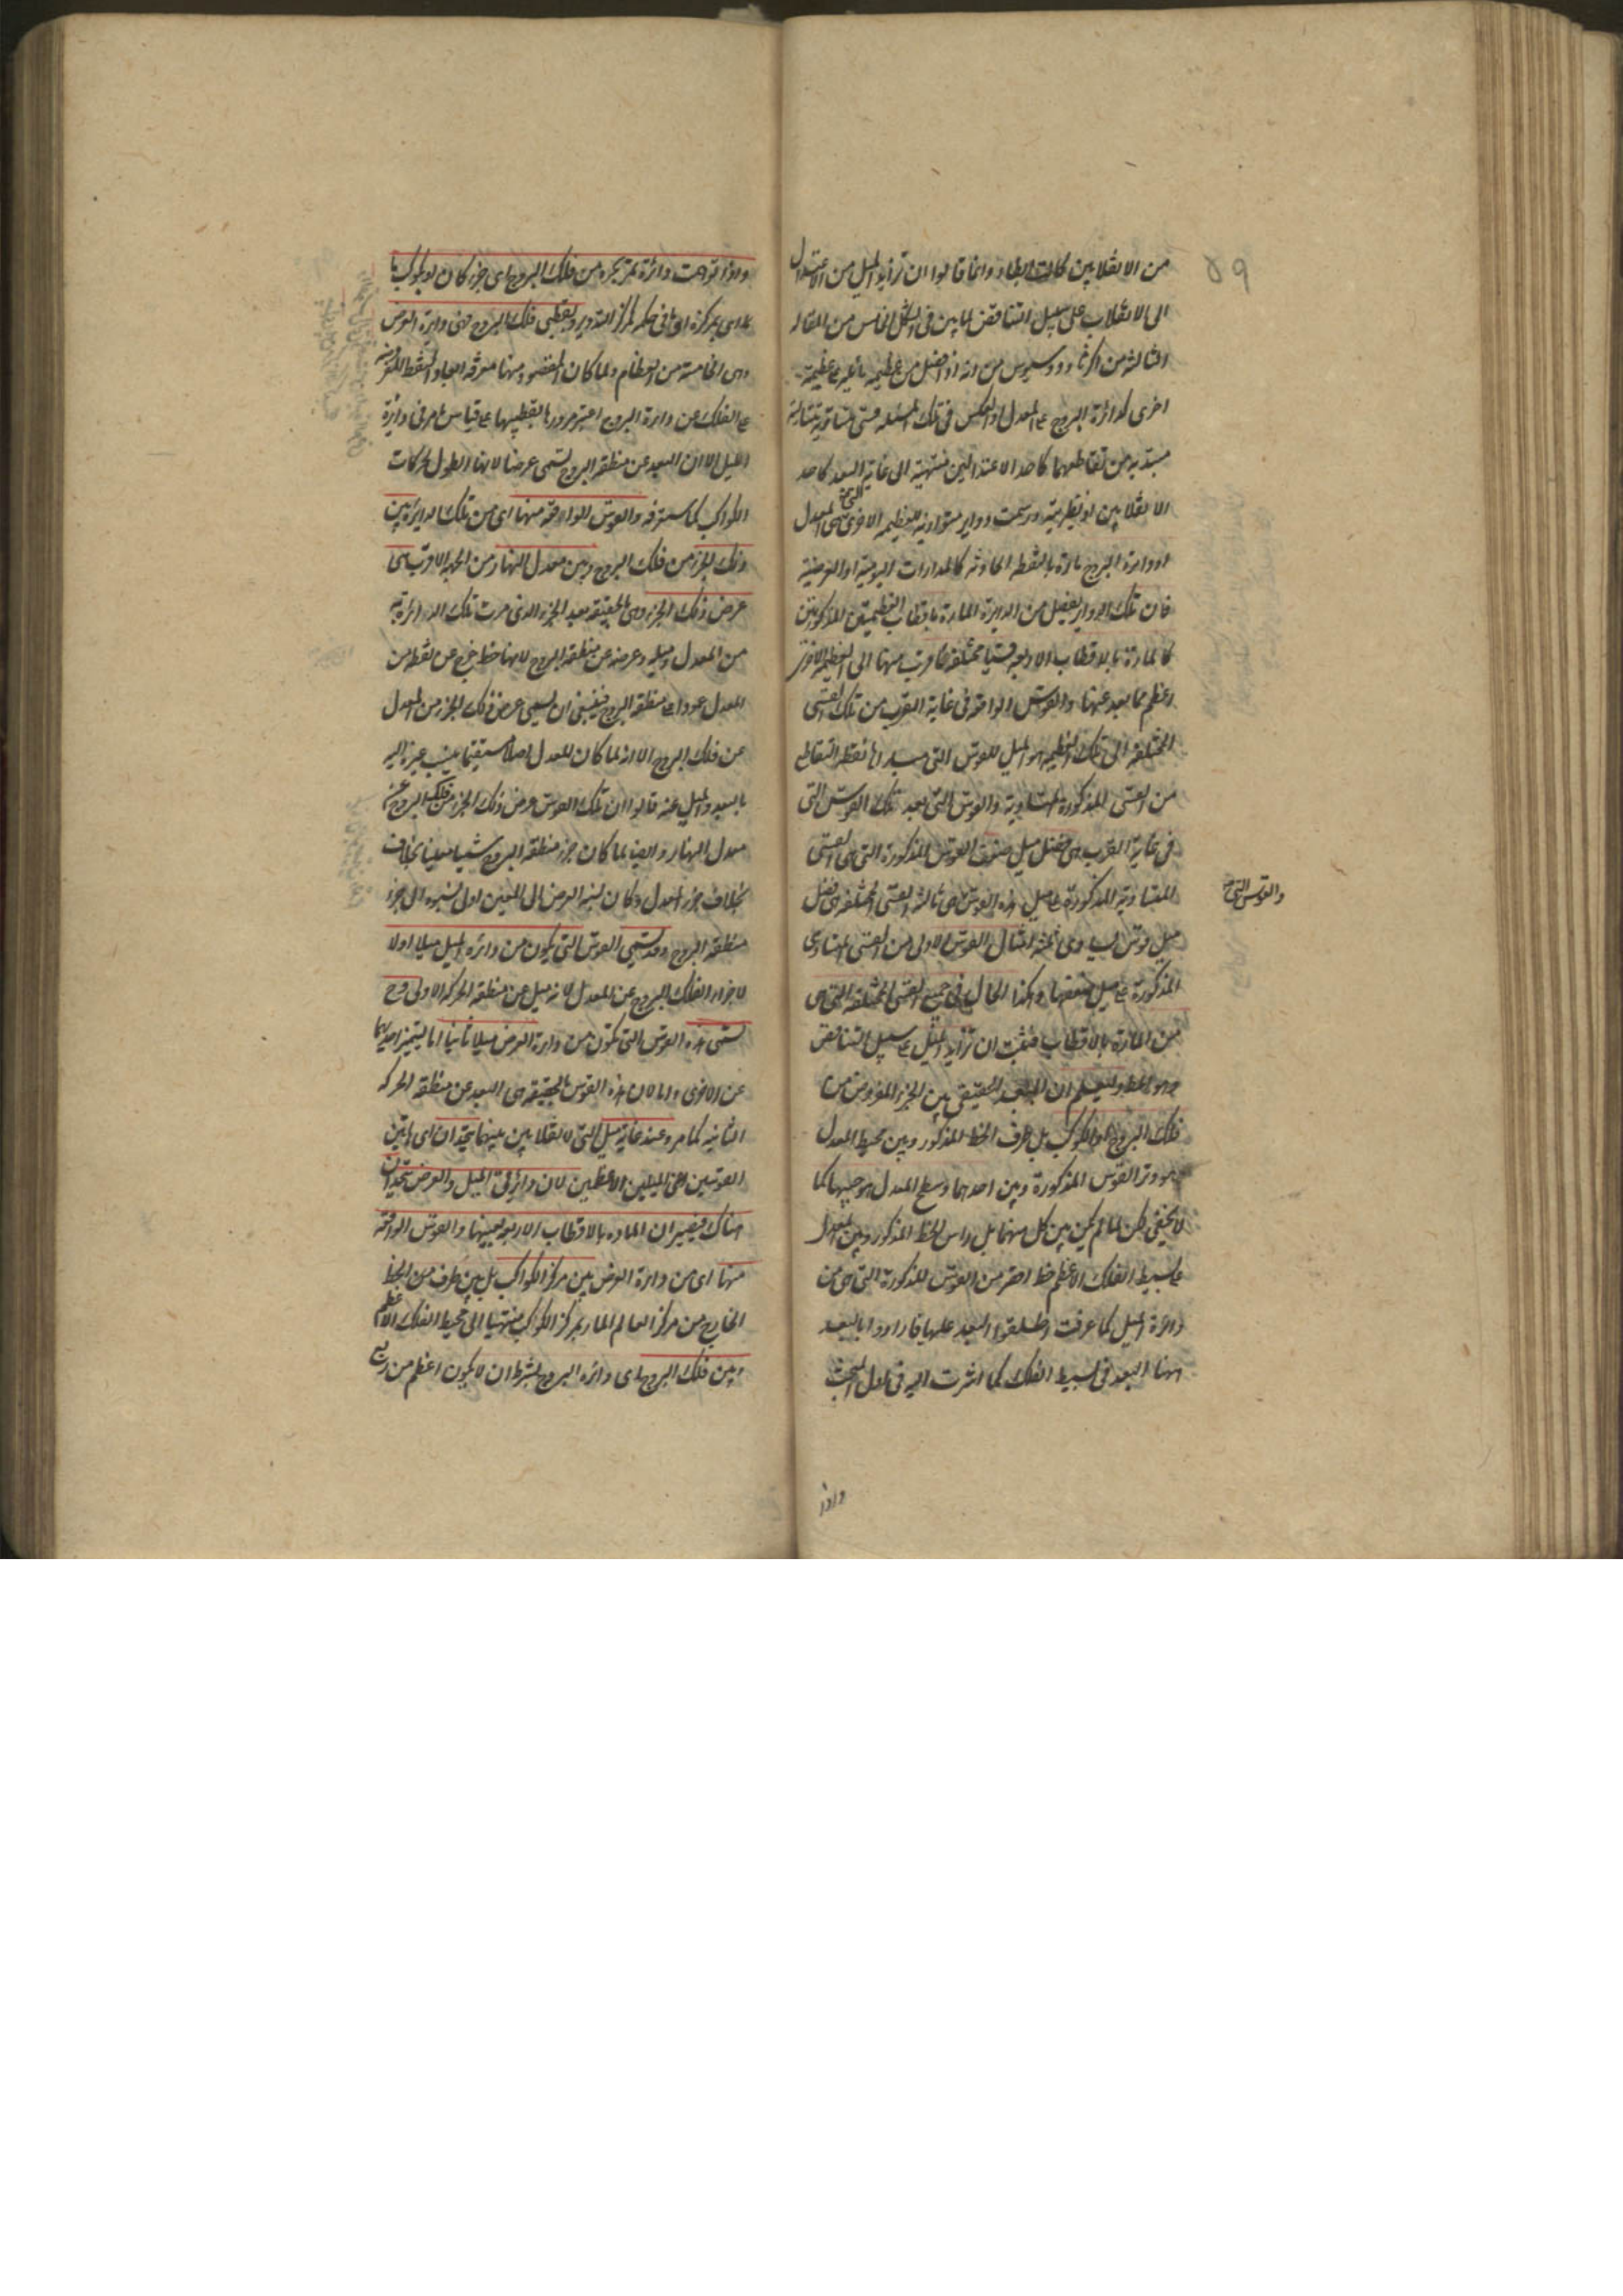 ٥٩
من الانقلابين كانت ابطاء وانما قالوا ان تزايد الميل من الاعتدال
الى الانقلاب على سبيل التناقص لما بين فى الشكل الخامس من المقالة
الثالثة من اكر ثاوذوسيوس من انه اذا فصل من عظيمة مائلة على عظيمة
اخرى كدائرة البروج على المعدل او بالعكس فى تلك المسئلة قسى متساوية متتالية
مبتدية من تقاطعهما كاحد الاعتدالين منتهية الى غاية البعد كاحد
الانقلابين او نظيرتيه ورسمت دواير متوازية للعظيمة الاخرى التى هى المعدل
او دايرة البروج مارة بالنقط الحادثة كالمدارات اليومية او العرضية
فان تلك الدواير يفصل من الدايرة المارة باقطاب العظيمتين المذكورتين
كالمارة بالاقطاب الاربعة قسيا مختلفة ما قرب منها الى العظيمة الاخرى
اعظم مما بعد عنها والقوس الواقعة فى غاية القرب من تلك القسى
المختلفة الى تلك العظيمة هو الميل للقوس التى مبداها نقطة التقاطع
من القسى المذكورة المتساوية والقوس التى بعد تلك القوس التى
فى غاية القرب هى فضل ميل ضعف القوس المذكورة التى هى القسى
المتساوية المذكورة على ميل هذه القوس التى هى ثالثة القسى المختلفة هى فضل
والقوس التى
ميل قوس يساوى ثلثة امثال القوس الاولى من القسى المتساوى
المذكورة على ميل ضعفها وهكذا الحال فى جميع القسى المختلفة التى هى
من المارة بالاقطاب فثبت ان تزايد الميل على سبيل التناقص
وهو المط وليعلم ان البعد الحقيقى بين الجزء المفروض من
فلك البروج او الكوكب بل طرف الخط المذكور وبين محيط المعدل
هو وتر القوس المذكورة وبين احدهما وسطح المعدل هو جيبها كما
لا يخفى لكن لما لم يكن بين كل منهما بل راس الخط المذكور وبين المعدل
على بسيط الفلك الاعظم خط اقصر من القوس المذكورة التى هى من
دائرة الميل كما عرفت اطلقوا البعد عليها فارادوا بالبعد
ههنا البعد فى بسيط الفلك كما اشرت اليه فى اول المبحث
واذا
واذا توهمت دائرة تمر بجزء من فلك البروج اى جزء كان او بكوكب ما
اى بمركزه او ما فى حكمه كمركز التدوير وبقطبى فلك البروج فهى دايرة العرض
وهى الخامسة من العظام ولما كان المقصود منها معرفة ابعاد النقط المفروضة
على الفلك عن دايرة البروج اعتبر مرورها بقطبيها على قياس ما مر فى دايرة
الميل الا ان البعد عن منطقة البروج تسمى عرضا لانها الطول لحركات
الكواكب كما ستعرفه والقوس الواقعة منها اى من تلك الدايرة بين
ذلك الجزء من فلك البروج وبين معدل النهار من الجهة الاقرب هى
عرض ذلك الجزء وهى بالحقيقة بعد الجزء الذى مرت تلك الدائرة به
من المعدل وميله وعرضه عن منطقة البروج لانها خط خرج عن نقطة من
المعدل عمودا على منطقة البروج فينبغى ان يسمى عرض ذلك الجزء من المعدل
عن فلك البروج الا انه لما كان المعدل اصلا مستقيما ينسب غيره اليه
بالبعد والميل عنه قالوا ان تلك القوس عرض ذلك الجزء من فلك البروج عن
معدل النهار وايضا لما كان جزء منطقة البروج شيئا معينا بخلاف
بخلاف جزء المعدل وكان نسبة العرض الى المعين اولى نسبوه الى جزء
منطقة البروج وقد يسمى القوس التى يكون من دائرة الميل ميلا اولا
لاجزاء الفلك البروج عن المعدل لانه ميل عن منطقة الحركة الاولى وح
تسمى هذه القوس التى تكون من دايرة العرض ميلا ثانيا اما ليتميز احديهما
عن الاخرى واما لان هذه القوس بالحقيقة هى البعد عن منطقة الحركة
الثانية كما مر وعند غاية ميل التى الانقلابين ميليهما يتحدان اى هاتين
القوسين اعنى الميلين الاعظمين لان دائرتى الميل والعرض يتحدان
هناك فيصيران المارة بالاقطاب الاربعة بعينها والقوس الواقعة
منها اى من دايرة العرض بين مركز الكواكب بل بين طرف من الخط
الخارج من مركز العالم المار بمركز الكوكب منتهيا الى محيط الفلك الاعظم
وبين فلك البروج اى دائرة البروج بشرط ان لا يكون اعظم من ربع